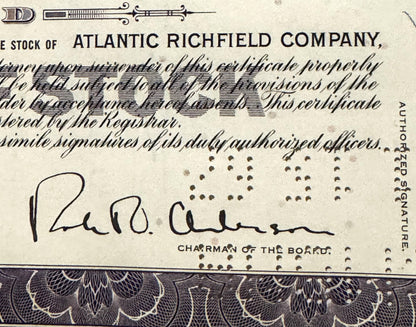 D
E STOCK OF ATLANTIC RICHFIELD COMPANY,
ttorney upon surrender of this certificate properly
be held subject to all of the provisions of the
STOCK
der by acceptance hereof assents. This certificate
stered by the Registrar.
simile signatures of its duly authorized officers.
AUTHORIZED SIGNATURE.
CHAIRMAN OF THE BOARD.